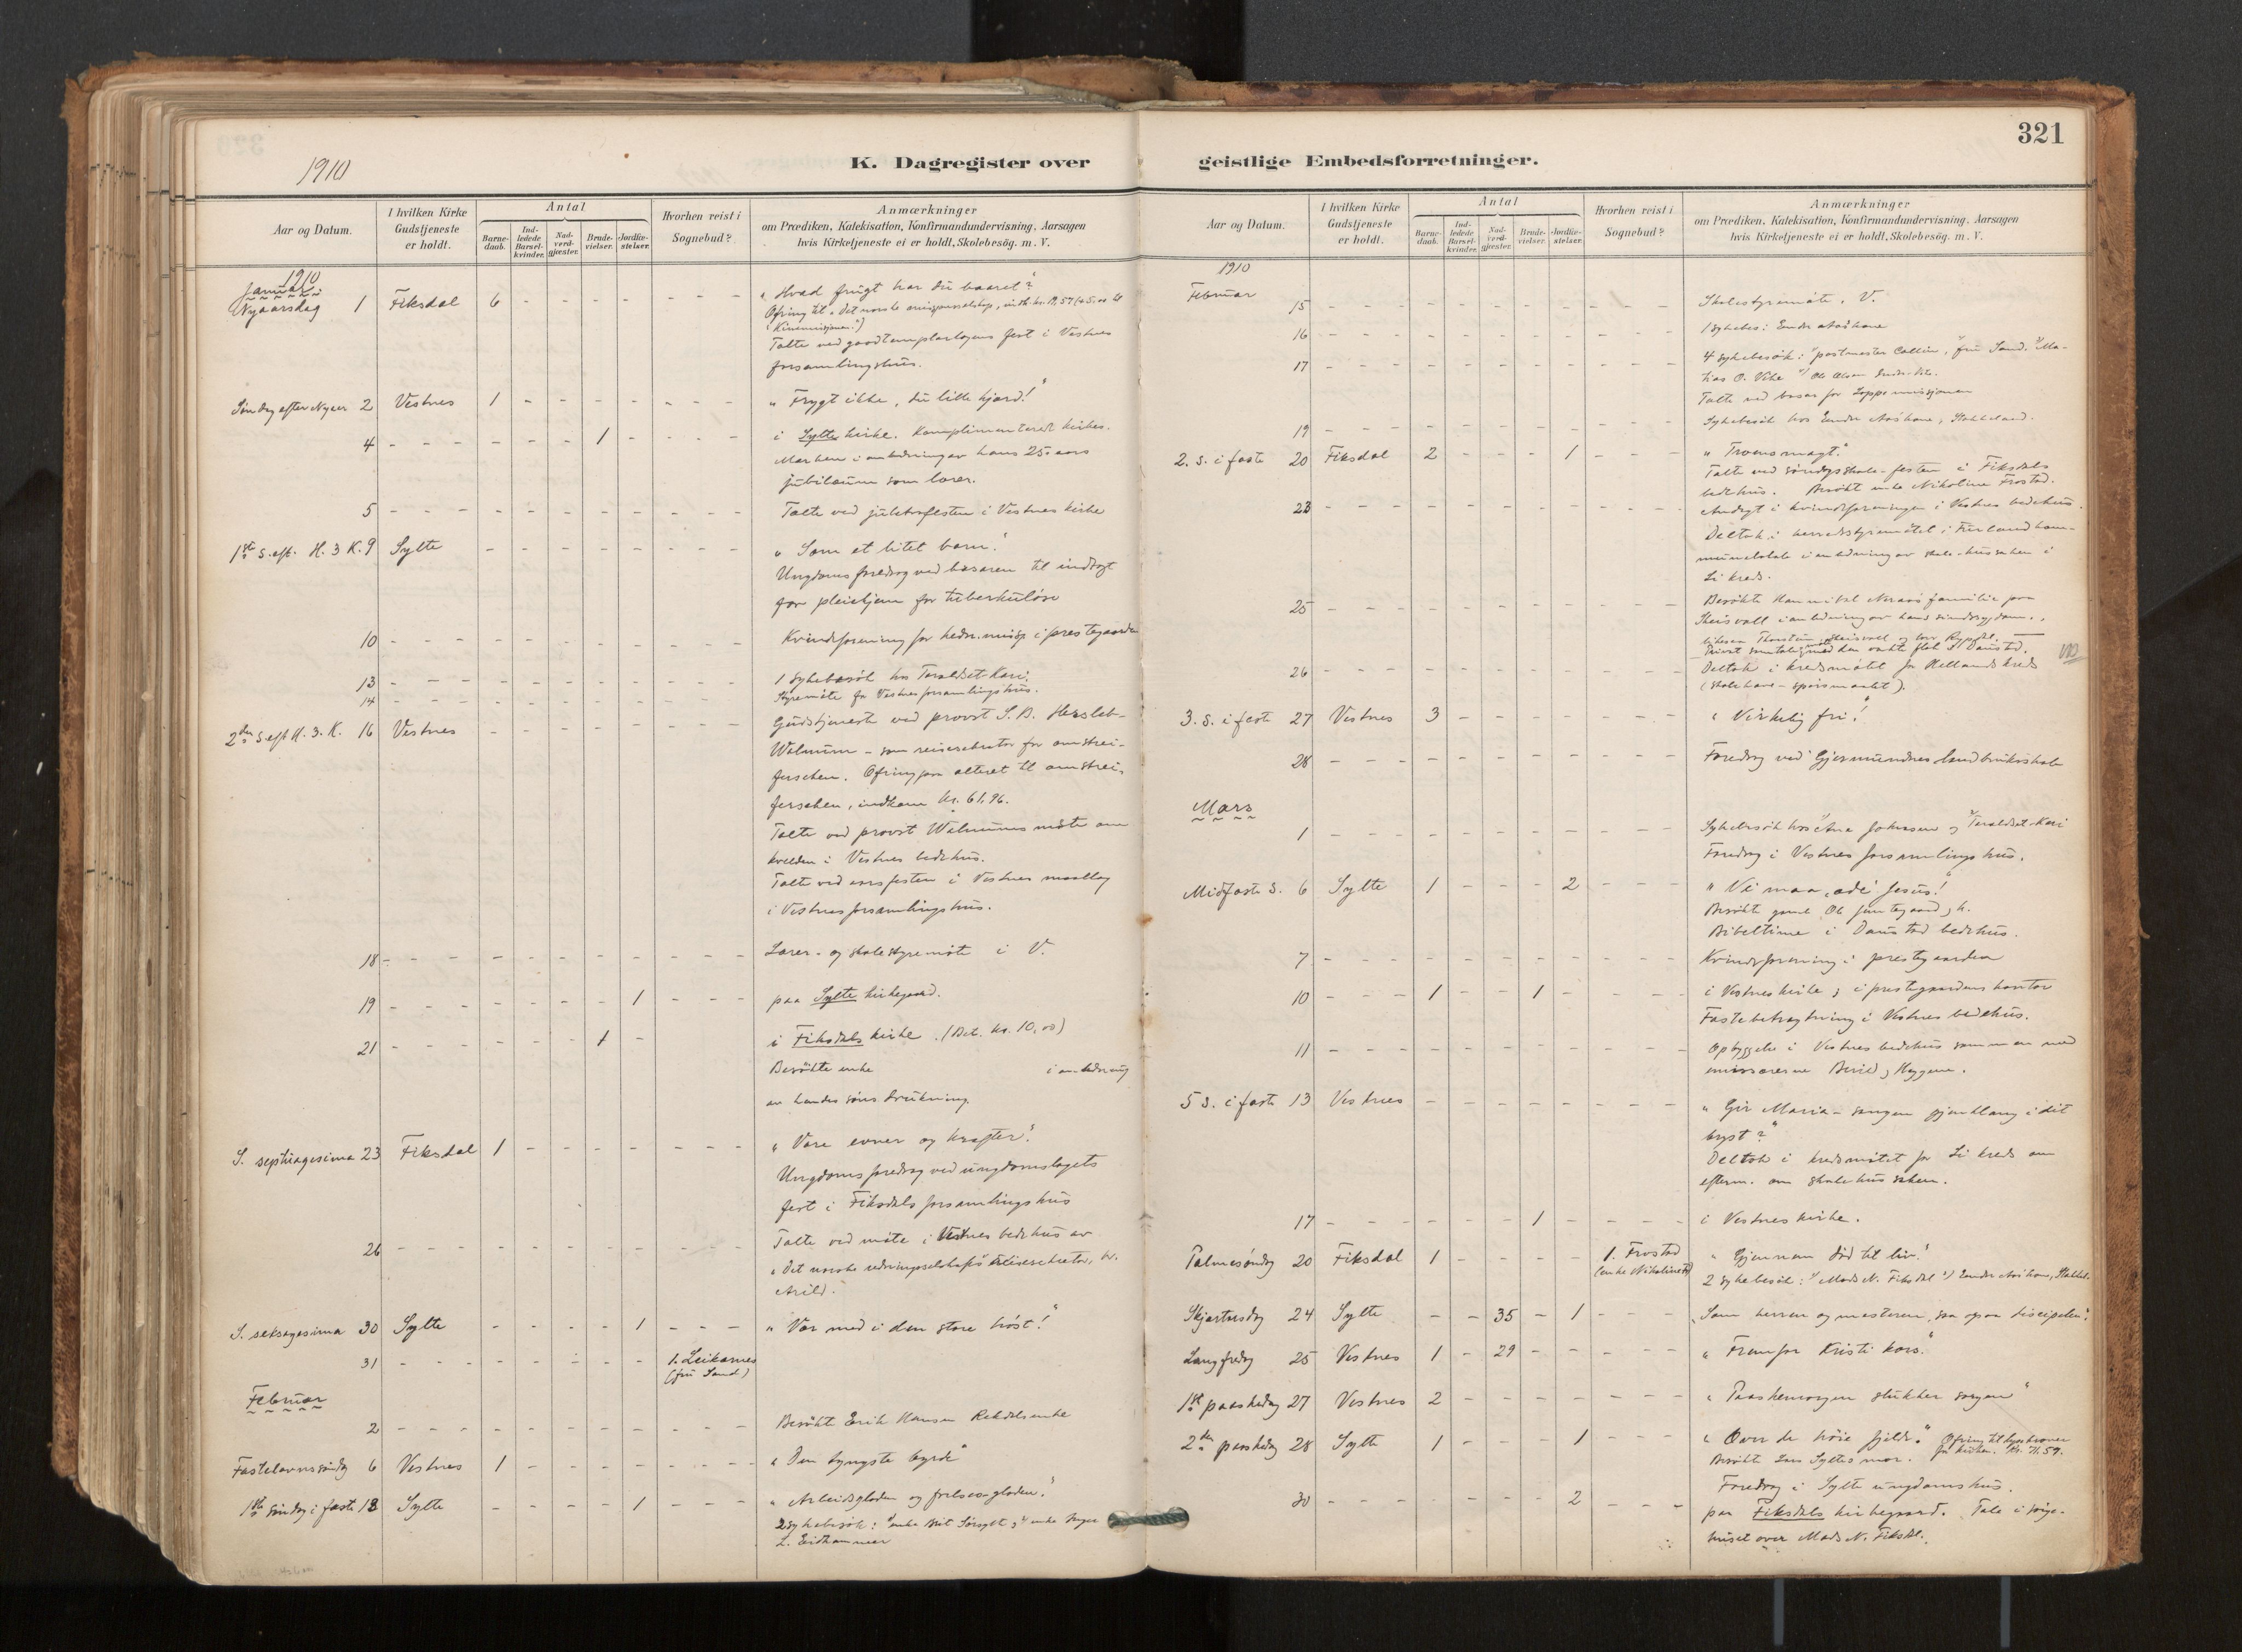 1910
K. Dagregister over
Aar og Datum.
I hvilken Kirke
Gudstjeneste
er holdt.
Antal
Barne-
daab.
Ind-
ledede
Barsel-
kvinder.
Nad-
verd-
gjæster.
Brude-
vielser.
Jordfæ-
stelser.
Hvorhen reist i
Sognebud?
Anmærkninger
om Prædiken, Katekisation, Konfirmandundervisning, Aarsagen
hvis Kirketjeneste ei er holdt, Skolebesög. m. V.
1910
Januar
Nyaarsdag 1 Fiksdal 6 - - - - - - - „Hvad frugt har du baaret?
Ofring til „Det norske misjonsselskap, indk. kr. 19,57 (+ 5,00 til
Kinamisjonen.")
Talte ved goodtemplarlogens fest i Vestnes
forsamlingshus.
Søndag efter Nyaar 2 Vestnes 1 - - - - - - - „Frygt ikke, du lille hjord!"
4 - - - - - - 1 - - - - i Sylte kirke. Komplimenterte kirkes.
i anledning av hans 25-aars
jubilæum som lærer.
5 - - - - - - - - - - Talte ved juletrefesten i Vestnes kirke
1ste S. eft. H. 3 K. 9 Sylte - - - - - - - - „Som et litet barn."
Ungdomsforedrag ved basaren til indtægt
for pleiehjem for tuberkuløse
10 - - - - - - - - - - Kvindeforening for hedn. misj. i prestegaarden
13 - - - - - - - - - - 1 sykebesøk hos Teraldset-Kari.
14 - - - - - - - - - - Styremøte for Vestnes forsamlingshus.
2den S. eft. H. 3. K. 16 Vestnes - - - - - - - - Gudstjeneste ved provst S. B. Hersleb-
Walnum - som reisesekretær for omstrei-
fersaken. Ofring paa alteret til omstrei-
fersaken, indkom kr. 61,96.
Talte ved provst Walnums møte om
kvelden i Vestnes bedehus.
Talte ved aarsfesten i Vestnes maallag
i Vestnes forsamlingshus.
18 - - - - - - - - - - Lærer- og skolestyremøte i V.
19 - - - - - - - 1 - - - paa Sylte kirkegaard.
21 - - - - - - 1 - i Fiksdals kirke. (Bet. kr. 10,00)
Besøkte enke i anledning
av hendes søns drukning.
S. septuagesima 23 Fiksdal 1 - - - - - - - „Vore evner og kræfter."
Ungdomsforedrag ved ungdomslagets
fest i Fiksdals forsamlingshus
26 - - - - - - - - - - Talte ved møte i Vestnes bedehus av
„Det norske redningsselskaps" reisesekretær, hr.
Arild.
S. seksagesima 30 Sylte - - - - 1 - - - „Vær med i den store høst!"
31 - - - - - - - 1. Leikarnes
(fru Sand)
Februar
2 - - - - - - - - - - Besøkte Erik Hansen Rekdals enke
Fastelavnssøndag 6 Vestnes 1 - - - - - - - „Den tyngste byrde"
1ste søndag i faste 13 Sylte - - - - 1 - - - „Arbeidsglæden og frelses-glæden."
2 sykebesøk: 1) enke Brit Sørsylt, 2) enke Inger
L. Eidhammer
321
geistlige Embedsforretninger.
Aar og Datum.
I hvilken Kirke
Gudstjeneste
er holdt.
Antal
Barne-
daab.
Ind-
ledede
Barsel-
kvinder.
Nad-
verd-
gjæster.
Brude-
vielser.
Jordfæ-
stelser.
Hvorhen reist i
Sognebud?
Anmærkninger
om Prædiken, Katekisation, Konfirmandundervisning, Aarsagen
hvis Kirketjeneste ei er holdt, Skolebesög. m. V.
1910
Februar
15 - - - - - - - - - - Skolestyremøte, V.
16 - - - - - - - - - - 1 sykebes: Endre Aashave
17 - - - - - - - - - - 4 sykebesøk: 1) postmester Collin, 2) fru Sand, 3) Ma-
tias O. Vike 4) Ole Olsen
Talte ved basar for Lappemissjonen
19 - - - - - - - - - - Sykebesøk hos Endre Aashave, Stokkeland.
2. S. i faste 20 Fiksdal 2 - - - 1 - - - „Troens magt."
Talte ved søndagsskole-festen i Fiksdals
bedehus. Besøkt enke Nikoline Frostad.
23 - - - - - - - - - - Andagt i kvindeforeningen i Vestnes bedehus.
Deltok i herredsstyremøtet i kom-
munelokale i anledning av skole-hussaken i
Li kreds.
25 - - - - - - - - - - Besøkte familie paa
Skeisvoll i anledning av hans sindssygdom.,
26 - - - - - - - - - - Deltok i kredsmøtet for Hellands kreds
(skolehave-spørsmaalet).
3. S. i faste 27 Vestnes 3 - - - - - - - „Virkelig fri!"
28 - - - - - - - - - - Foredrag ved Gjermundnes landbruksskole
Mars
1 - - - - - - - - - - Sykebesøk hos 1) Ane Johnsen og 2) Teraldset-Kari
Foredrag i Vestnes forsamlingshus.
Midfaste S. 6 Sylte 1 - - - 2 - - - „Vi maa 'æde' Jesus!"
Besøkte gamle Ole
Bibeltime i Daustad bedehus.
7 - - - - - - - - - - Kvindeforening i prestegaarden
10 - - - 1 - - 1 - - - - i Vestnes kirke; i prestegaardens kontor
Fastebetragtning i Vestnes bedehus.
11 - - - - - - - - - - Opbyggelse i Vestnes bedehus sammen med
emissærerne
5 S. i faste 13 Vestnes - - - - - - - - „Gir Maria-sangen gjenklang i dit
bryst?"
Deltok i kredsmøtet for Li kreds om
efterm. om skolehussaken.
17 - - - - - - 1 - - - - i Vestnes kirke.
Palmesøndag 20 Fiksdal 1 - - - - 1. Frostad
(enke Nikoline F.)
„Gjennem død til liv!
2 sykebesøk: 1) Mads N. Fiksdal 2) Endre Aashave, Stokkel.
Skjærtorsdag 24 Sylte - - 35 - 1 - - - „Som herren og mesteren, saa ogsaa discipelen."
Langfredag 25 Vestnes 1 - 29 - - - - - „Fremfor Kristi kors."
1ste paaskedag 27 Vestnes 2 - - - - - - - „Paaskemorgen slukker sorgen"
2den paaskedag 28 Sylte 1 - - - 1 - - - „Over de høie fjelde." Ofring til lysekroner
for kirken. Kr. 71.59.
Besøkte Lars Syltes mor.
Foredrag i Sylte ungdomshus.
30 - - - - - - - 2 - - - paa Fiksdals kirkegaard. Tale i sørge-
huset over Mads N. Fiksdal.